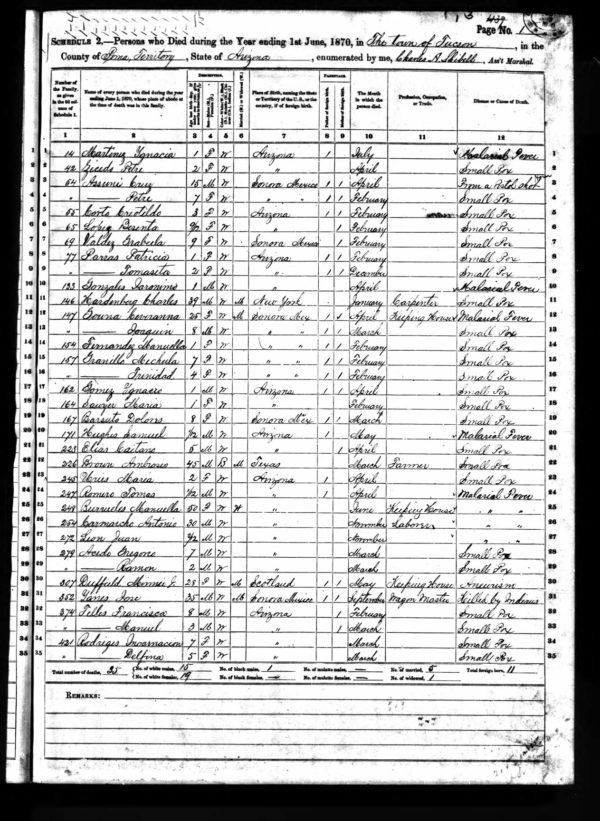 439
Page No. 1
SCHEDULE 2.—Persons who Died during the Year ending 1st June, 1870, in The Town of Tucson, in the
County of Pima, Territory, State of Arizona, enumerated by me, Charles H. Ass't Marshal.
Number of the Family, as given in the 2d column of Schedule 1.
Name of every person who died during the year ending June 1, 1870, whose place of abode at the time of death was in this family.
DESCRIPTION.
Place of Birth, naming the State or Territory of the U.S., or the country, if of foreign birth.
PARENTAGE.
The Month in which the person died.
Profession, Occupation, or Trade.
Disease or Cause of Death.
1 2 3 4 5 6 7 8 9 10 11 12
1 14 Martinez Ignacia 1 F W Arizona 1 July Malarial Fever 1
2 42 Petra 2 F W " April Small Pox 2
3 54 Cruz 15 M W Sonora Mexico 1 1 April From a Pistol shot 3
4 " Petra 7 F W " " 1 1 February Small Pox 4
5 55 3 F W Arizona 1 1 February Small Pox 5
6 65 Lopez F W " 1 February Small Pox 6
7 69 Valdez Grabiela 9 F W Sonora Mexico 1 February Small Pox 7
8 77 Parras Patricia 1 F W Arizona 1 1 February Small Pox 8
9 " Tomasita 2 F W " 1 1 December Small Pox 9
10 133 Gonzales 1 M W " April Malarial Fever 10
11 146 Hardenberg Charles 39 M W M New York January Carpenter Small Pox 11
12 147 25 F W M Sonora Mex 1 1 April Keeping House Malarial Fever 12
13 " Joaquin 8 M W " " 1 1 March Small Pox 13
14 154 Fernandez Manuella 1 F W " " 1 1 February Small Pox 14
15 157 Granillo 7 F W " " 1 1 February Small Pox 15
16 " Trinidad 4 F W " " 1 1 February Small Pox 16
17 162 Gomez Ygnacio 1 M W Arizona 1 1 April Small Pox 17
18 164 Sawyer Maria 1 F W " February Small Pox 18
19 167 Dolores 8 F W Sonora Mex 1 1 March Small Pox 19
20 171 Hughes Samuel M W Arizona 1 May Malarial Fever 20
21 223 Elias Caetano 5 M W " 1 April Small Pox 21
22 226 Brown Ambrose 45 M B M Texas March Farmer Small Pox 22
23 245 Maria 2 F W Arizona 1 April Small Pox 23
24 247 Romero Tomas M W " 1 April Malarial Fever 24
25 248 Manuella 50 F W W " June Keeping House " " 25
26 254 Antonio 30 M W " November Laborer " " 26
27 272 Leon Juan M W " November " " 27
28 279 Gregorio 7 M W " March Small Pox 28
29 " Ramon 2 M W " March Small Pox 29
30 307 Duffield Minnie J. 28 F W M Scotland 1 1 May Keeping House Aneurism 30
31 352 Yanes Jose 35 M W M Sonora Mexico 1 1 September Wagon Master Killed by Indians 31
32 374 Telles Francisco 8 M W Arizona 1 February Small Pox 32
33 " Manuel 3 M W " 1 March Small Pox 33
34 421 Rodriges Incarnacion 7 F W " March Small Pox 34
35 " Delfina 5 F W " March Small Pox 35
Total number of deaths, 35 No. of white males, 15 No. of black males, 1 No. of mulatto males, — No. of married, 5 Total foreign born, 11
No. of white females, 19 No. of black females, — No. of mulatto females, — No. of widowed, 1
REMARKS: